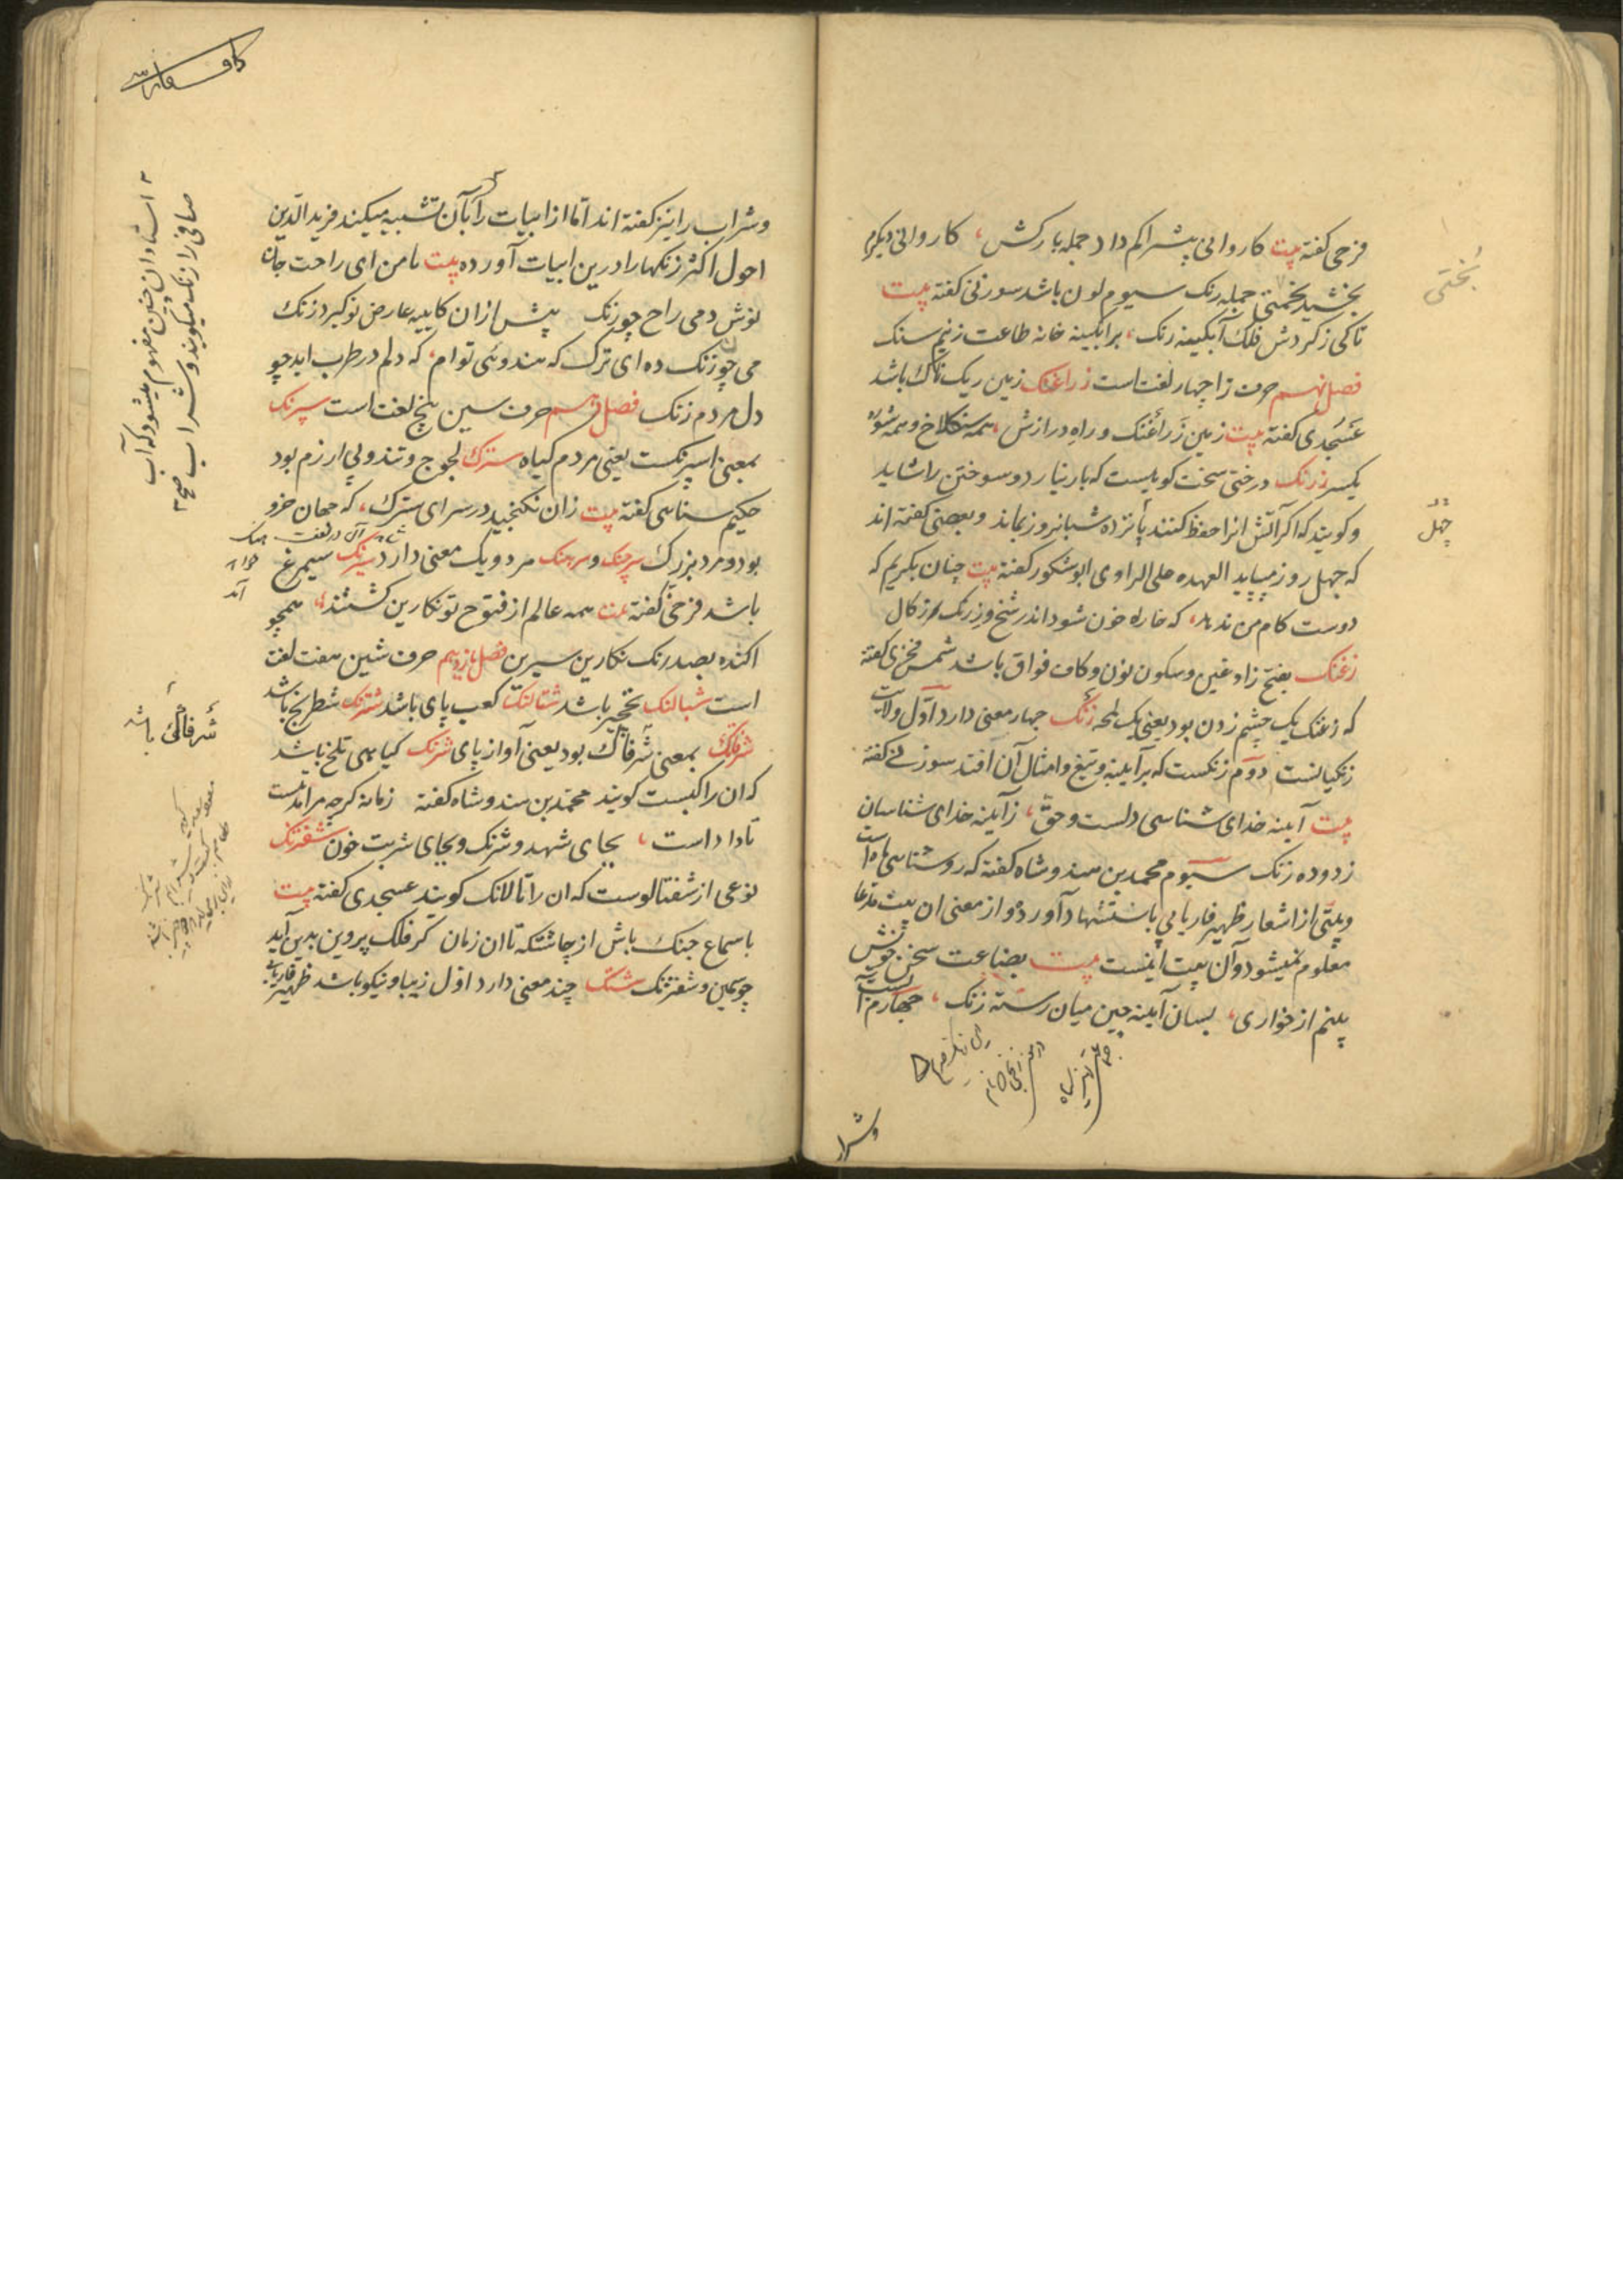 فرخی کفته بیت کاروانی بیشراکم داد جمله بارکش، کاروانی دیکرم
بخشید بختی جمله رنک سیوم لون باشد سوزنی کفته بیت
تا کی ز کردش فلک آبکینه رنک، بر آبکینه خانه طاعت زنیم سنک
فصل نهم حرف زا چهار لغت است زراغنک زمین ریک ناک باشد
عسجدی کفته بیت زمین زراغنک و راه درازش، همه سنکلاخ و همه شوره
یکسر زرنک درختی سخت کوهیست که بار نیارد و سوختن را شاید
و کویند که اکر آتش انرا حفظ کنند پانزده شبانروز بماند و بعضی کفته اند
که چهل روز میپاید العهده علی الراوی ابو شکور کفته بیت چنان بکریم که
دوست کام من ندهد، که خاره خون شود اندر شخ و زرنک زکال
زغنک بفتح زا و غین و سکون نون و کاف فواق باشد شمس فخری کفته
که زغنک یک چشم زدن بود یعنی یک لمحه زنک چهار معنی دارد اول ولایت
زنکیانست دوم زنکست که بر آیینه و تیغ و امثال آن افتد سوزنی کفته
بیت آینه خدای شناسی دلست و حق، ز آینه خدای شناسان
زدوده زنک سیوم محمد بن هندوشاه کفته که روشناسی ماه است
و بیتی از اشعار ظهیر فاریابی باستشهاد آورده و از معنی ان بیت مدعا
معلوم نمیشود و آن بیت اینست بیت بضاعت سخن خویش
بینم از خواری، بسان آینه چین میان رسته زنک، چهارم
وشرا
بختی
چهل
وشراب را نیز کفته اند اما از ابیات بآن تشبیه میکند فرید الدین
احول اکثر زنکها را درین ابیات آورده بیت با من ای راحت جان
نوش دمی راح چو زنک پیش ازان کایینه عارض تو کیرد زنک
می چو زنک ده ای ترک که هندوی توام، که دلم در طرب اید چو
دل مردم زنک فصل دهم حرف سین پنج لغت است سپرنک
بمعنی اسپرنکست یعنی مردم کیاه سترک لجوج و تند و بی ازرم بود
حکیم سنایی کفته بیت زان نکنجید در سرای سترک، که جهان خرد
بود و مرد بزرک سرچنک و سرهنک هر دو یک معنی دارد سیرنک سیمرغ
باشد فرخی کفته بیت همه عالم از فتوح تو نکارین کشتند، همچو
اکنده بصد رنک نکارین سیرین فصل یازدهم حرف شین هفت لغت
است شبالنک نخجیر باشد شتالنک کعب پای باشد شترنک شطرنج باشد
شرفنک بمعنی شرفاک بود یعنی آواز پای شرنک کیاهی تلخ باشد
که ان را کبست کویند محمد بن هندوشاه کفته زمانه کرچه مرا مدتیست
تا دادست، بجای شهد و شرنک و بجای شربت خون شفترنک
نوعی از شفتالوست که ان را تالانک کویند عسجدی کفته بیت
با سماع چنک باش از چاشتکه تا ان زمان کز فلک پروین پدید آید
چو سیمین و شفترنک شنک چند معنی دارد اول زیبا و نیکو باشد ظهیر فاریابی
استادان چنین مفهوم میشود که آب
صافی را زنک میکویند و شراب
شرفاک باشد